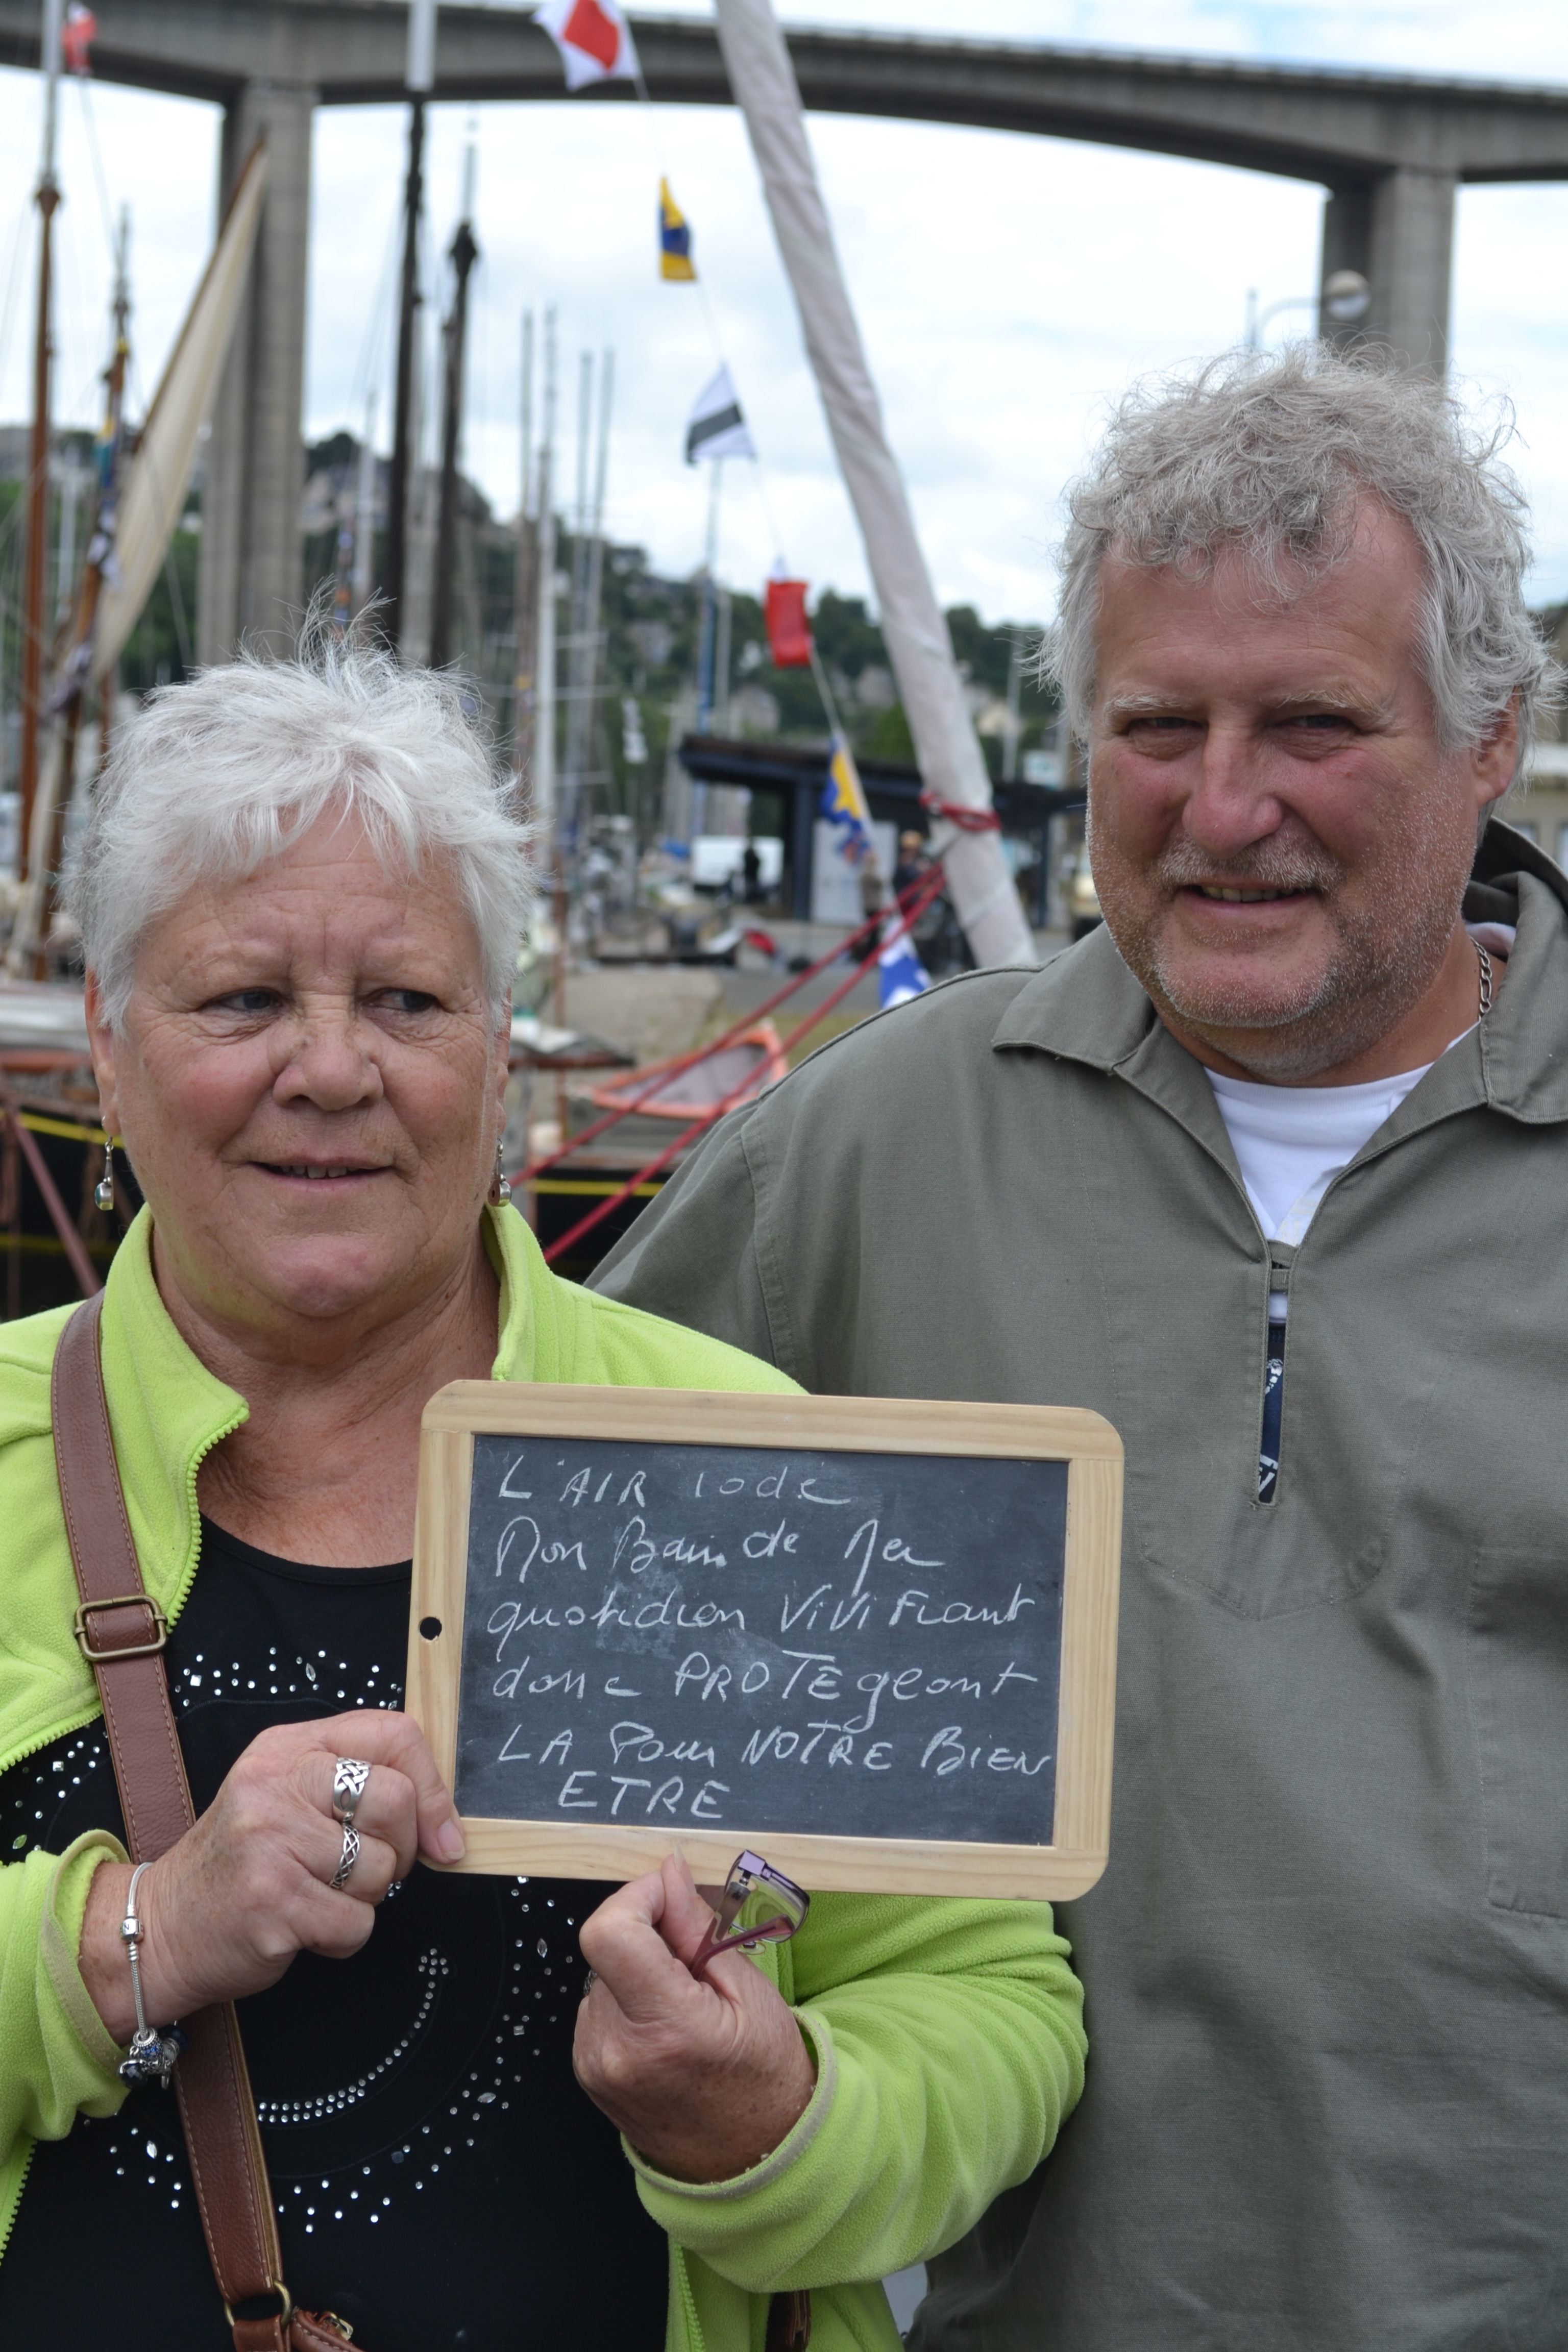 L'AIR iodé
Mon Bain de Mer
quotidien ViViFiant
donc PROTEgeont
LA Pour NOTRE BiEN
ETRE